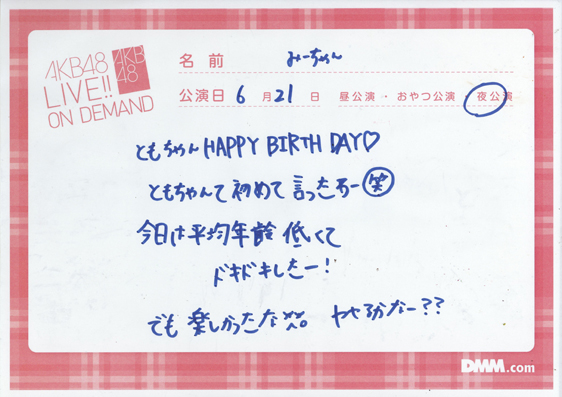 AKB48
LIVE!!
ON DEMAND
AKB
48
名前 みーちゃん
公演日 6月21日 昼公演・おやつ公演・夜公演
ともちゃん HAPPY BIRTH DAY♡
ともちゃんて初めて言ったぁー笑
今日は平均年齢低くて
ドキドキしたー!
でも楽しかったな
DMM.com